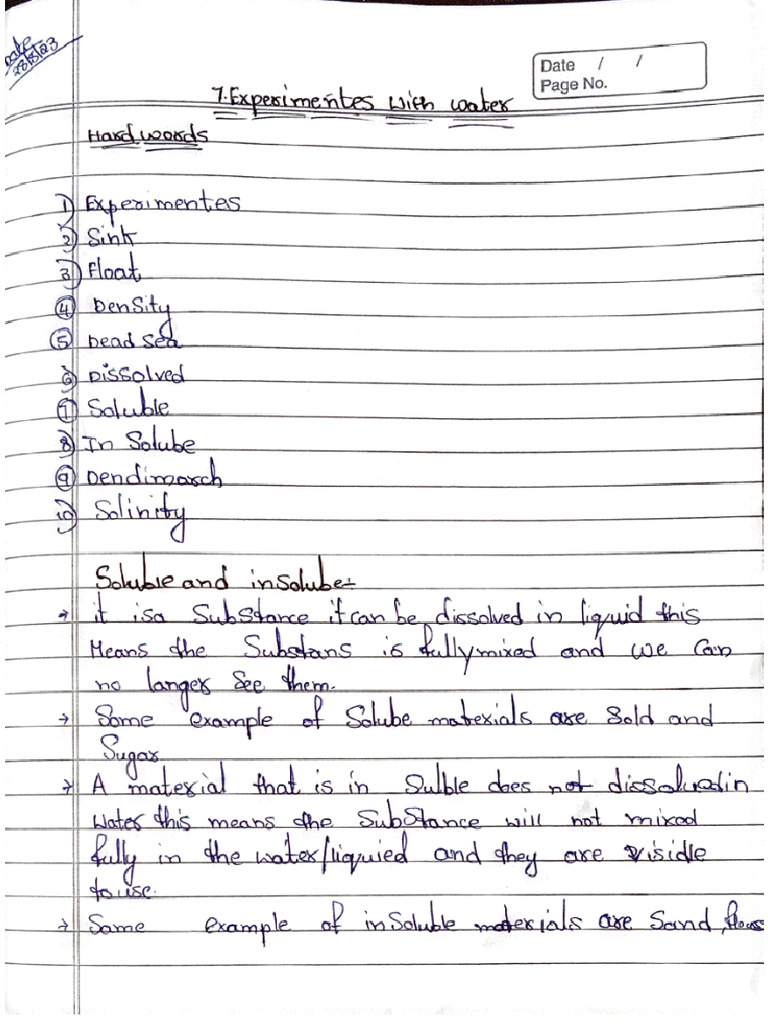 Date
28/8/23
Date / /
Page No.
7. Experimentes with water
Hard words
1) Experimentes
2) Sink
3) Float
4) Density
5) Dead Sea
6) Dissolved
7) Soluble
8) In Solube
9) Dendimarch
10) Solinity
Soluble and insolube:-
→ it isa Substance it can be dissolved in liquid this
Means the Substans is fully mixed and we can
no langer See them.
→ Some example of Solube materials are Sold and
Sugar
→ A material that is in Sulble does not dissolved in
Water this means the Substance will not mixed
fully in the water/liquied and they are visidle
to use.
→ Same example of in Soluble materials are Sand, flour